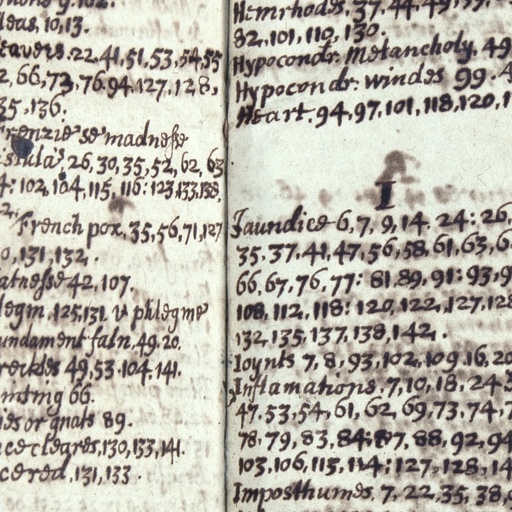 9. 102.
fleas, 10, 13.
feavers. 22, 41, 51, 53, 54, 55
66, 73, 76, 94, 127, 128,
35, 136:
frenzie se madnesse
26, 30, 35, 52, 62, 63
4: 102, 104, 115, 116: 123, 133, 138,
French pox, 35, 56, 71, 127
0, 131, 132,
fatnesse 42, 107.
flegm, 125, 131. v phlegme
fundament faln, 49, 20.
freckles 49, 53, 104, 141.
66.
flies or gnats 89.
130, 133, 141.
131, 133.
Hemrhodes, 37, 44, 49,
82, 101, 110, 130.
Hypocondr: Melancholy, 49
Hypocondr: windes 99:
Heart. 94, 97, 101, 118, 120, 1
I
Jaundice 6, 7, 9, 14, 24: 26,
35, 37, 41, 47, 56, 58, 61, 63, 6
66, 67, 76, 77: 81, 89, 91: 93, 9
108, 112, 118: 120, 122, 127, 128
132, 135, 137, 138, 142,
Ioynts 7, 8, 93, 102, 109, 16, 20
Inflamations, 7, 10, 18, 24,
47, 53, 54, 61, 62, 69, 73, 74, 7
78, 79, 83, 84: 87, 88, 92, 94
103, 106, 113, 114: 127, 128, 14
Imposthumes, 7, 22, 35, 38,